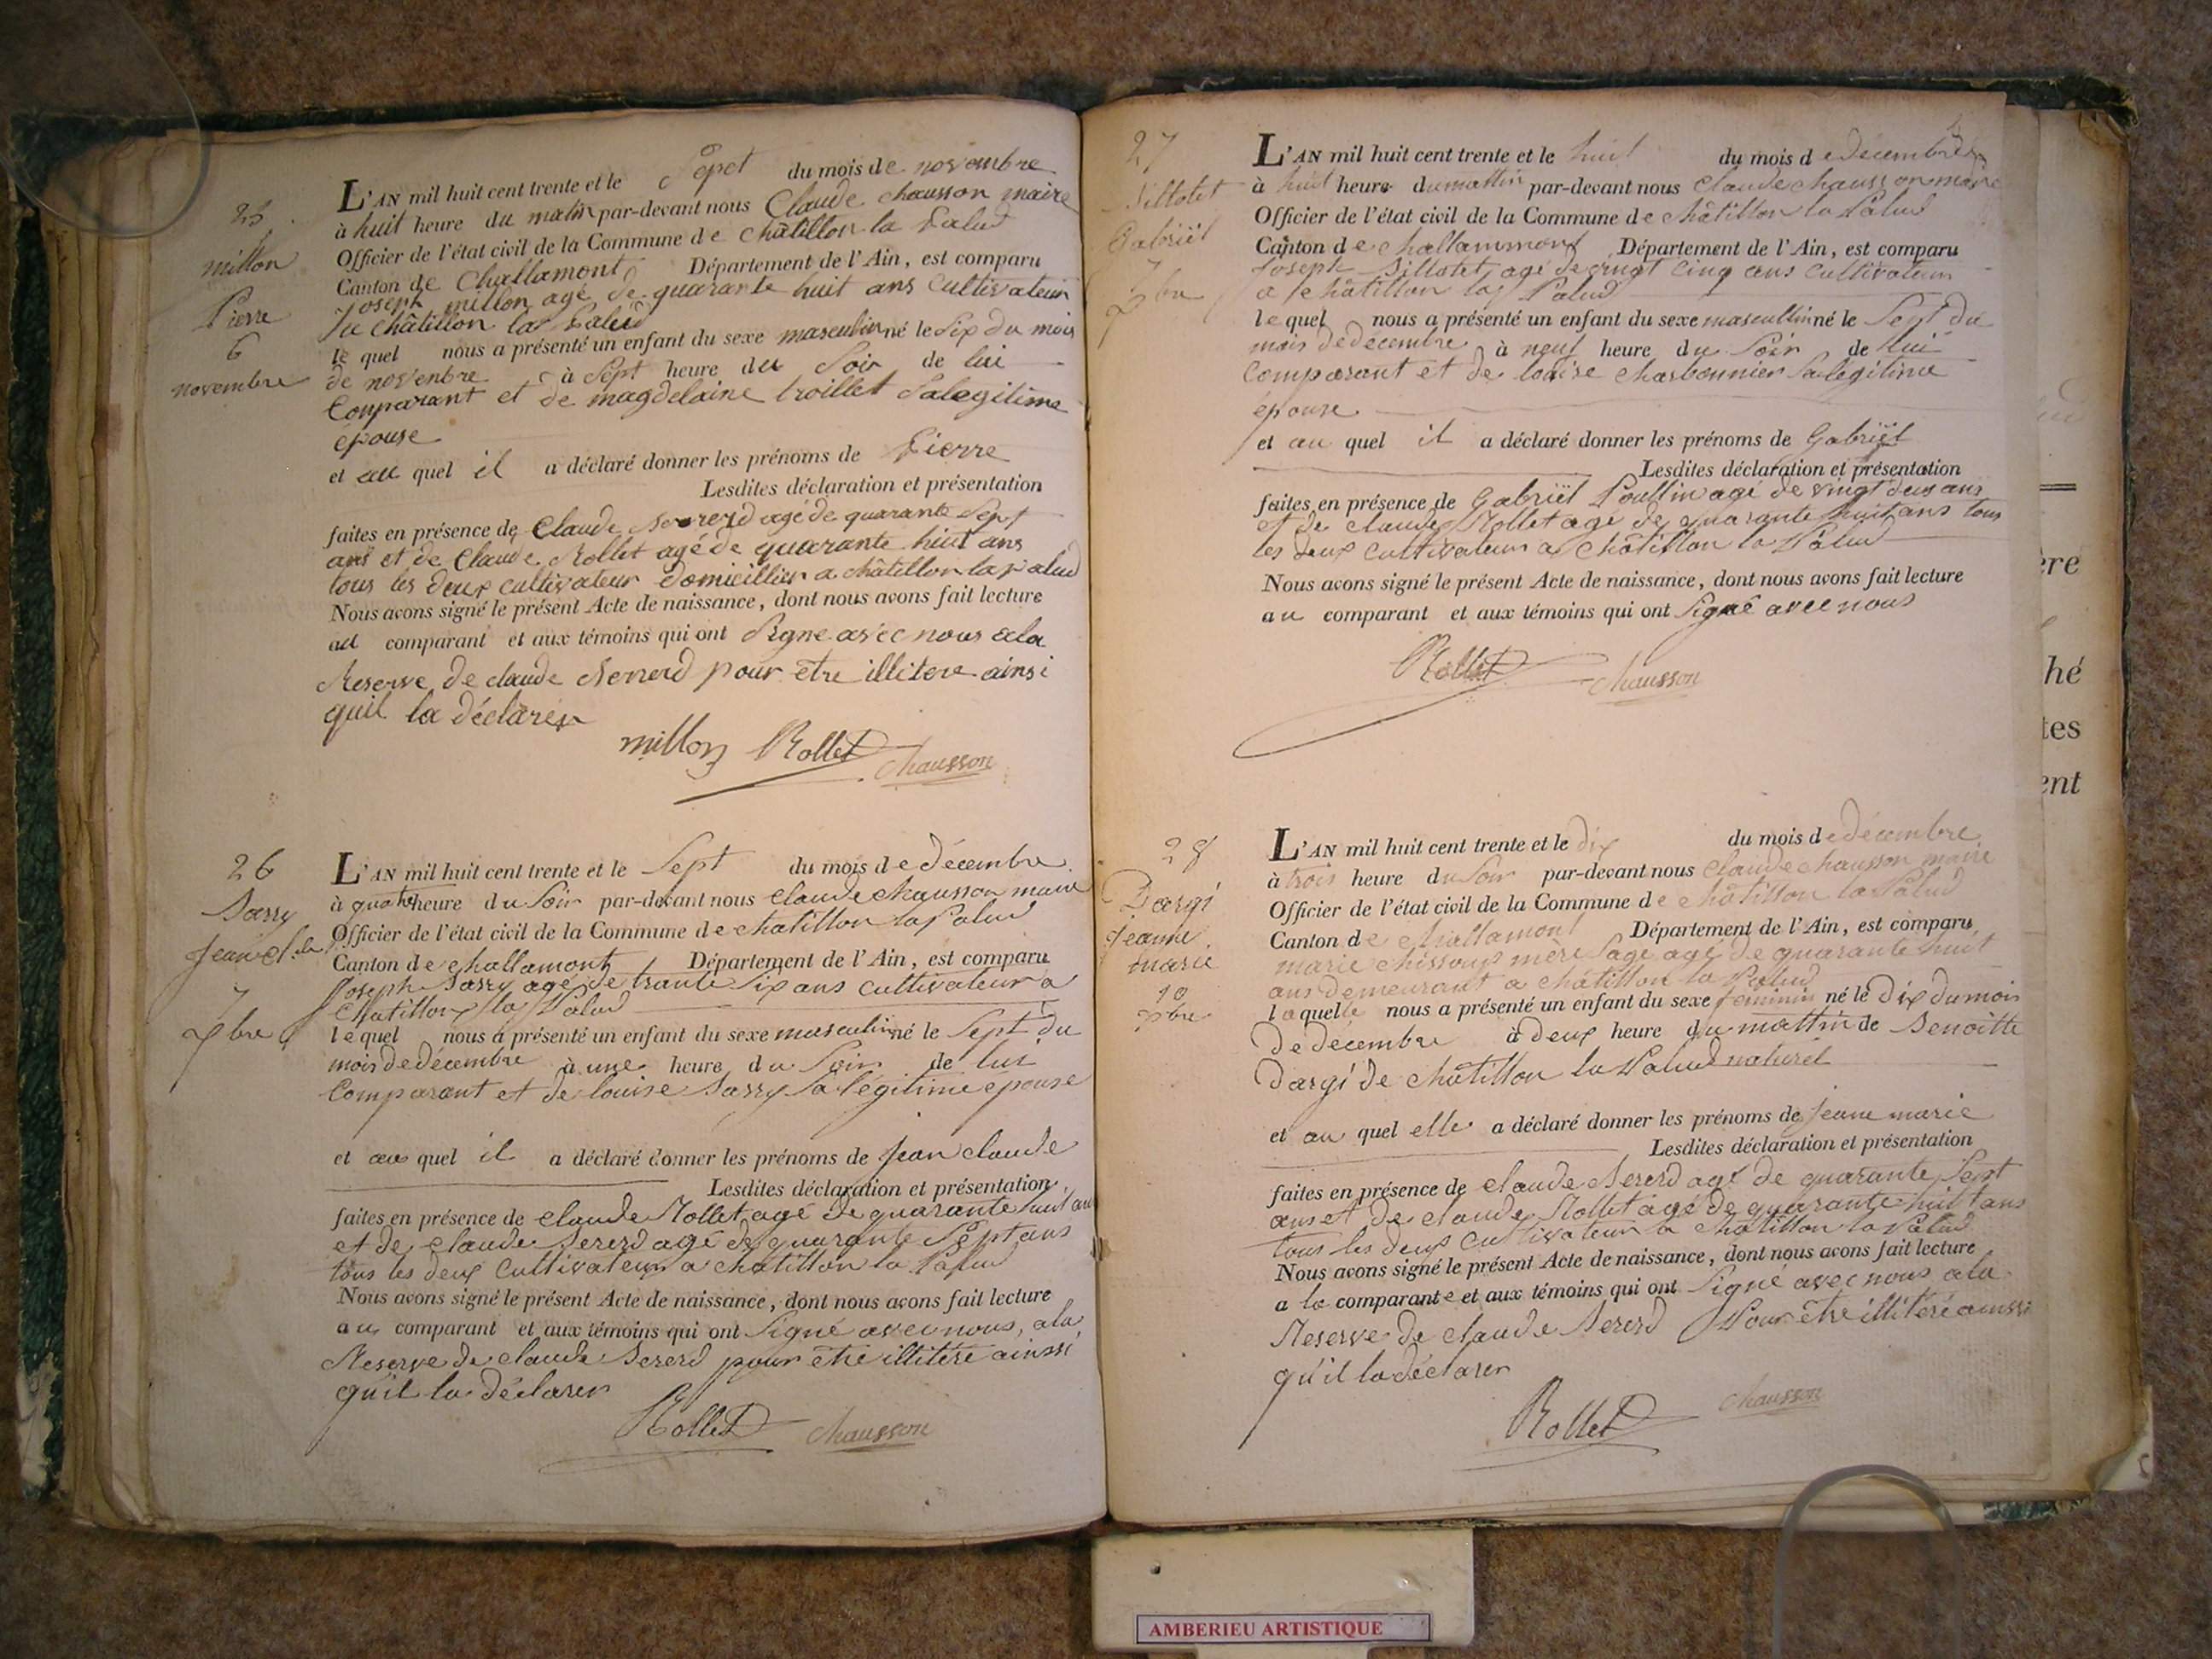 25
millon
Pierre
6
novembre
L'AN mil huit cent trente et le Sept du mois de novembre
à huit heure du matin par-devant nous Claude chausson maire
Officier de l'état civil de la Commune de châtillon la Palud
Canton de Challamont Département de l'Ain, est comparu
joseph millon agé de quarante huit ans Cultivateur
châtillon la Palud
le quel nous a présenté un enfant du sexe masculin né le Six du mois
de novenbre à Sept heure du Soir de lui
Conparant et de magdelaine troillet Salegitime
épouse
et au quel il a déclaré donner les prénoms de Pierre
Lesdites déclaration et présentation
faites en présence de Claude agé de quarante Sept
ans et de Claude Rollet agé de quarante huit ans
tous les deux cultivateur domicillier a châtillon la palud
Nous avons signé le présent Acte de naissance, dont nous avons fait lecture
au comparant et aux témoins qui ont Signe avec nous ala
Reserve de claude pour être illitere ainsi
quil la déclarer
millon Rollet chausson
26
Sarry
Jean
7
xbre
L'AN mil huit cent trente et le Sept du mois de décembre
à quatre heure du Soir par-devant nous Claude chausson maire
Officier de l'état civil de la Commune de chatillon la Palud
Canton de challamont Département de l'Ain, est comparu
joseph Sarry agé de trante Six ans cultivateur a
Chatillon la Palud
le quel nous a présenté un enfant du sexe masculin né le Sept du
mois de décembre à une heure du Soir de lui
Comparant et de louise Sarry Sa légitime epouse
et au quel il a déclaré donner les prénoms de jean claude
Lesdites déclaration et présentation
faites en présence de claude Rollet agé de quarante huit ans
et de claude Sererd agé de quarante Sept ans
tous les deux Cultivateur a chatillon la Palud
Nous avons signé le présent Acte de naissance, dont nous avons fait lecture
au comparant et aux témoins qui ont Signé avec nous, ala
Reserve de claude Sererd pour être illitéré ainssi
qu'il la déclarer
Rollet chausson
27
Gabriël
7
xbre
L'AN mil huit cent trente et le huit du mois de décembre
à huit heure du mattin par-devant nous Claude chausson maire
Officier de l'état civil de la Commune de châtillon la Palud
Canton de challammont Département de l'Ain, est comparu
joseph agé de vingt cinq ans cultivateur
a châtillon la Palud
le quel nous a présenté un enfant du sexe mascullin né le Sept du
mois de décembre à neuf heure du Soir de lui
Comparant et de louise charbonnier Salegitime
épouse
et au quel il a déclaré donner les prénoms de Gabriël
Lesdites déclaration et présentation
faites en présence de Gabriël Poullin agé de vingt deux ans
et de claude Rollet agé de quarante huit ans tous
les deux cultivateur a Châtillon la Palud
Nous avons signé le présent Acte de naissance, dont nous avons fait lecture
au comparant et aux témoins qui ont Signé avec nous
Rollet chausson
28
Dargi
jeanne
marie
10
xbre
L'AN mil huit cent trente et le dix du mois de décembre
à trois heure du Soir par-devant nous Claude chausson maire
Officier de l'état civil de la Commune de châtillon la Palud
Canton de challamont Département de l'Ain, est comparu
marie mère Sage agé de quarante huit
ans demeurant a châtillon la Palud
laquelle nous a présenté un enfant du sexe feminin né le Dix du mois
De décembre à deux heure du mattin de Benoitte
Dargi de châtillon la Palud naturel
et au quel elle a déclaré donner les prénoms de jeane marie
Lesdites déclaration et présentation
faites en présence de claude Sererd agé de quarante Sept
ans et de claude Rollet agé de quarante huit ans
tous les deux cultivateur a châtillon la Palud
Nous avons signé le présent Acte de naissance, dont nous avons fait lecture
a la comparante et aux témoins qui ont Signé avec nous ala
Reserve de claude Sererd Pour être illiteré ainssi
qu'il la déclarer
Rollet chausson
ère
hé
tes
ent
AMBERIEU ARTISTIQUE